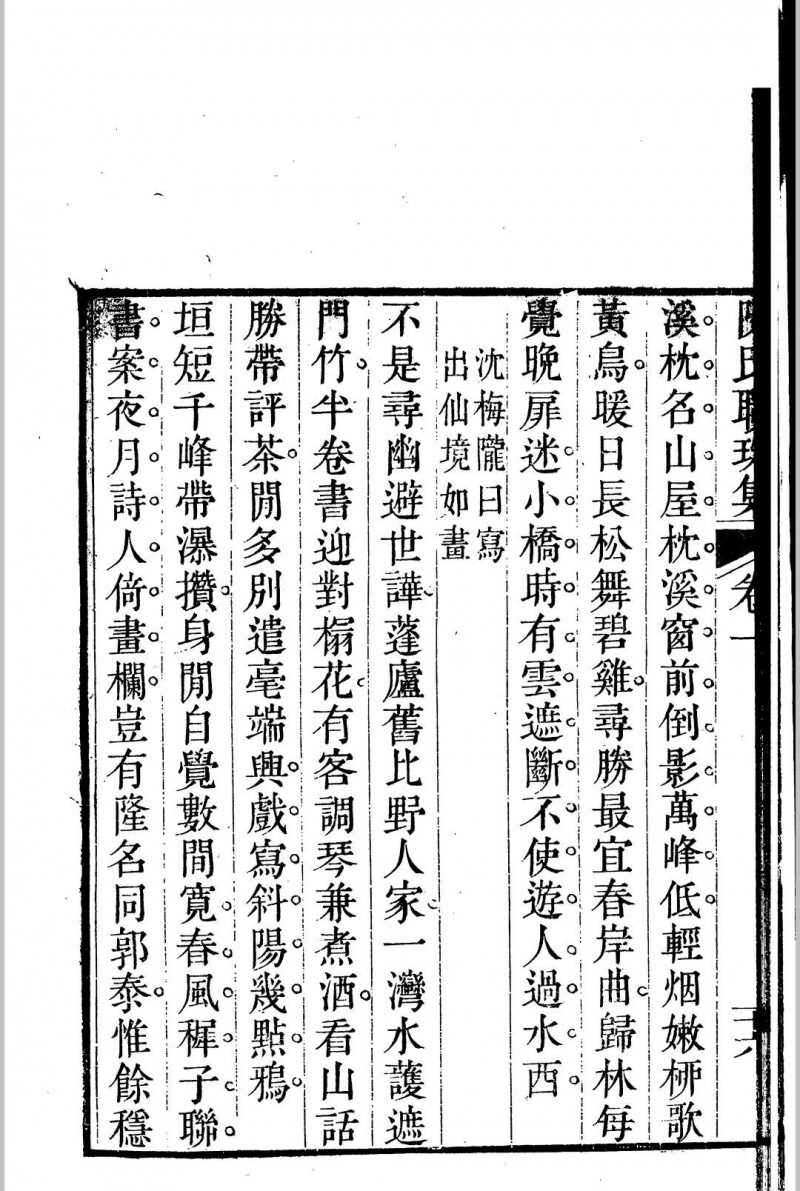 陳氏聯珠集 卷一
溪枕名山屋枕溪窗前倒影萬峰低輕烟嫩柳歌
黃鳥暖日長松舞碧雞尋勝最宜春岸曲歸林每
覺晚扉迷小橋時有雲遮斷不使遊人過水西
沈梅隴曰寫
出仙境如畫
不是尋幽避世譁蓬廬舊比野人家一灣水護遮
門竹半卷書迎對榻花有客調琴兼煮酒看山話
勝帶評茶閒多別遣毫端興戲寫斜陽幾點鴉
垣短千峰帶瀑攢身閒自覺數間寬春風穉子聯
書案夜月詩人倚畫欄豈有隆名同郭泰惟餘穩